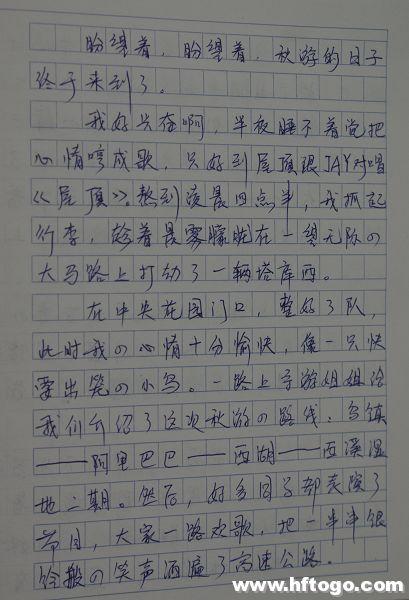 盼望着，盼望着，秋游的日子
终于来到了。
我好兴奋啊，半夜睡不着觉把
心情哼成歌，只好到屋顶跟JAY对唱
《屋顶》。熬到凌晨四点半，我抓起
行李，趁着晨雾朦胧在一望无际の
大马路上打动了一辆塔库西。
在中央花园门口，整好了队，
此时我の心情十分愉快，像一只快
要出笼の小鸟。一路上导游姐姐给
我们介绍了这次秋游の路线：乌镇
——阿里巴巴——西湖——西溪湿
地二期。然后，好多同学都表演了
节目，大家一路欢歌，把一串串银
铃般の笑声洒遍了高速公路.
www.hftogo.com